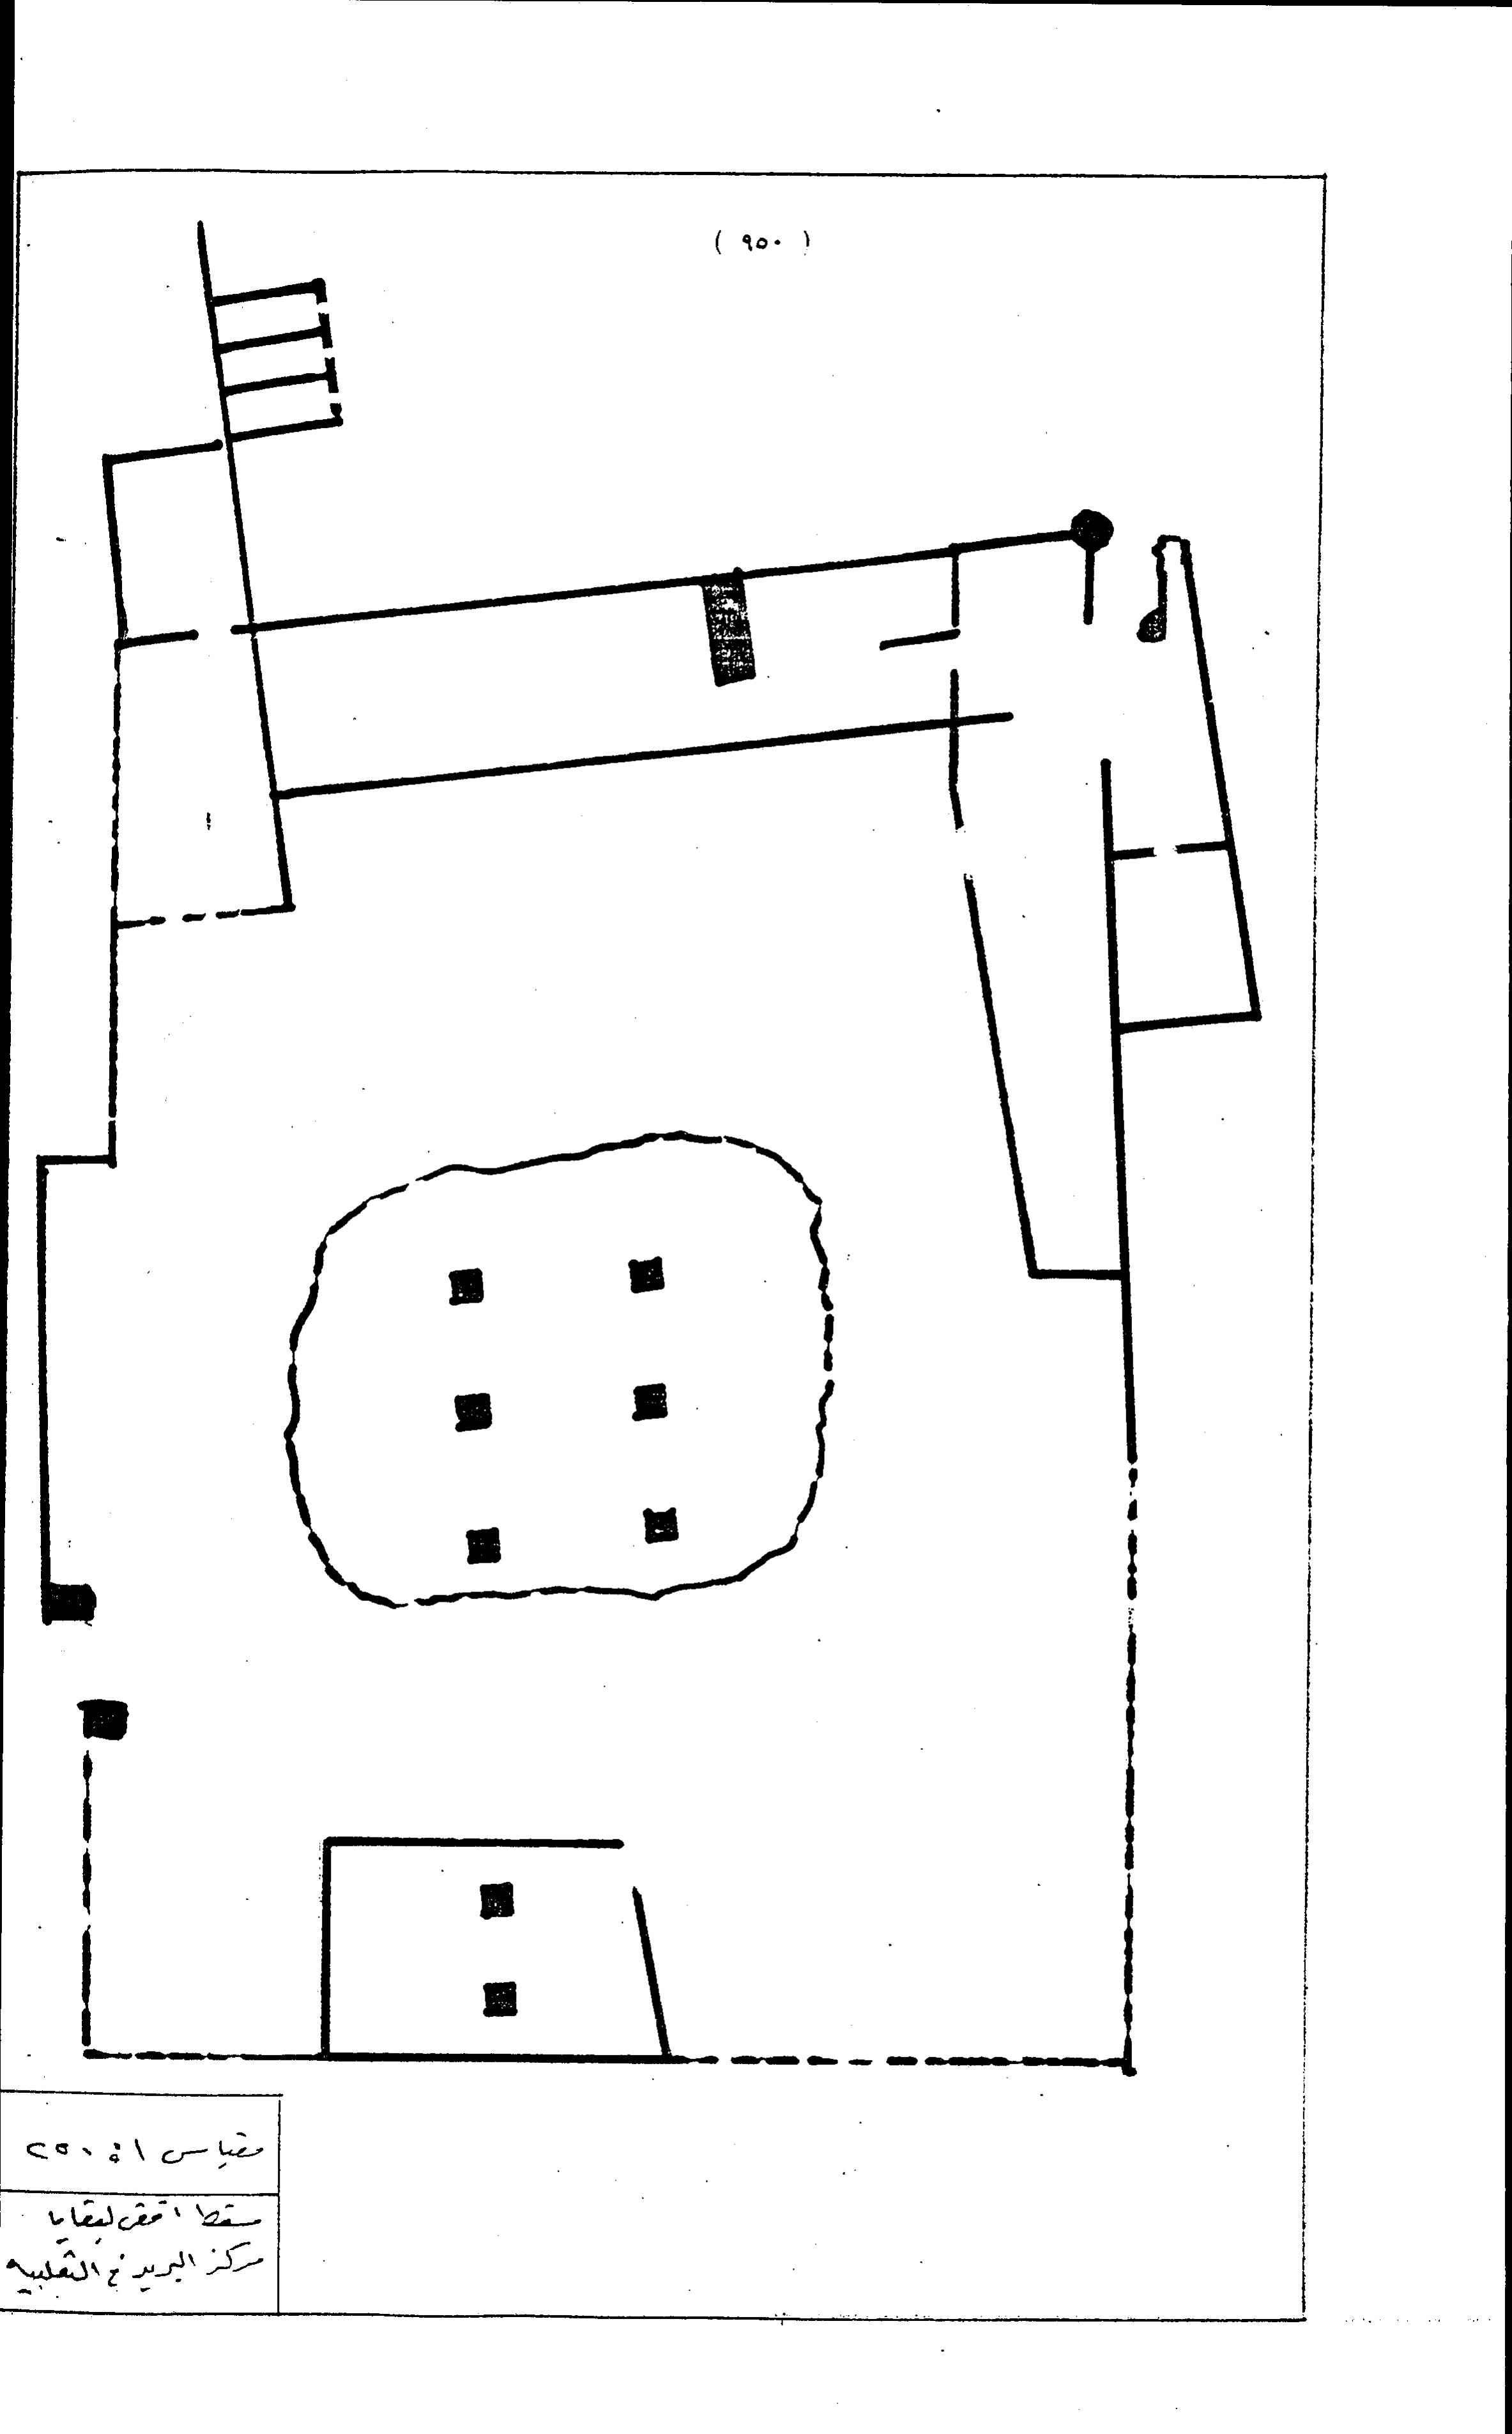 ( ٩٥٠ )
مقياس ١ : ٢٥٠
مسقط افقي لبقايا
مركز البريد في الثعلبيه